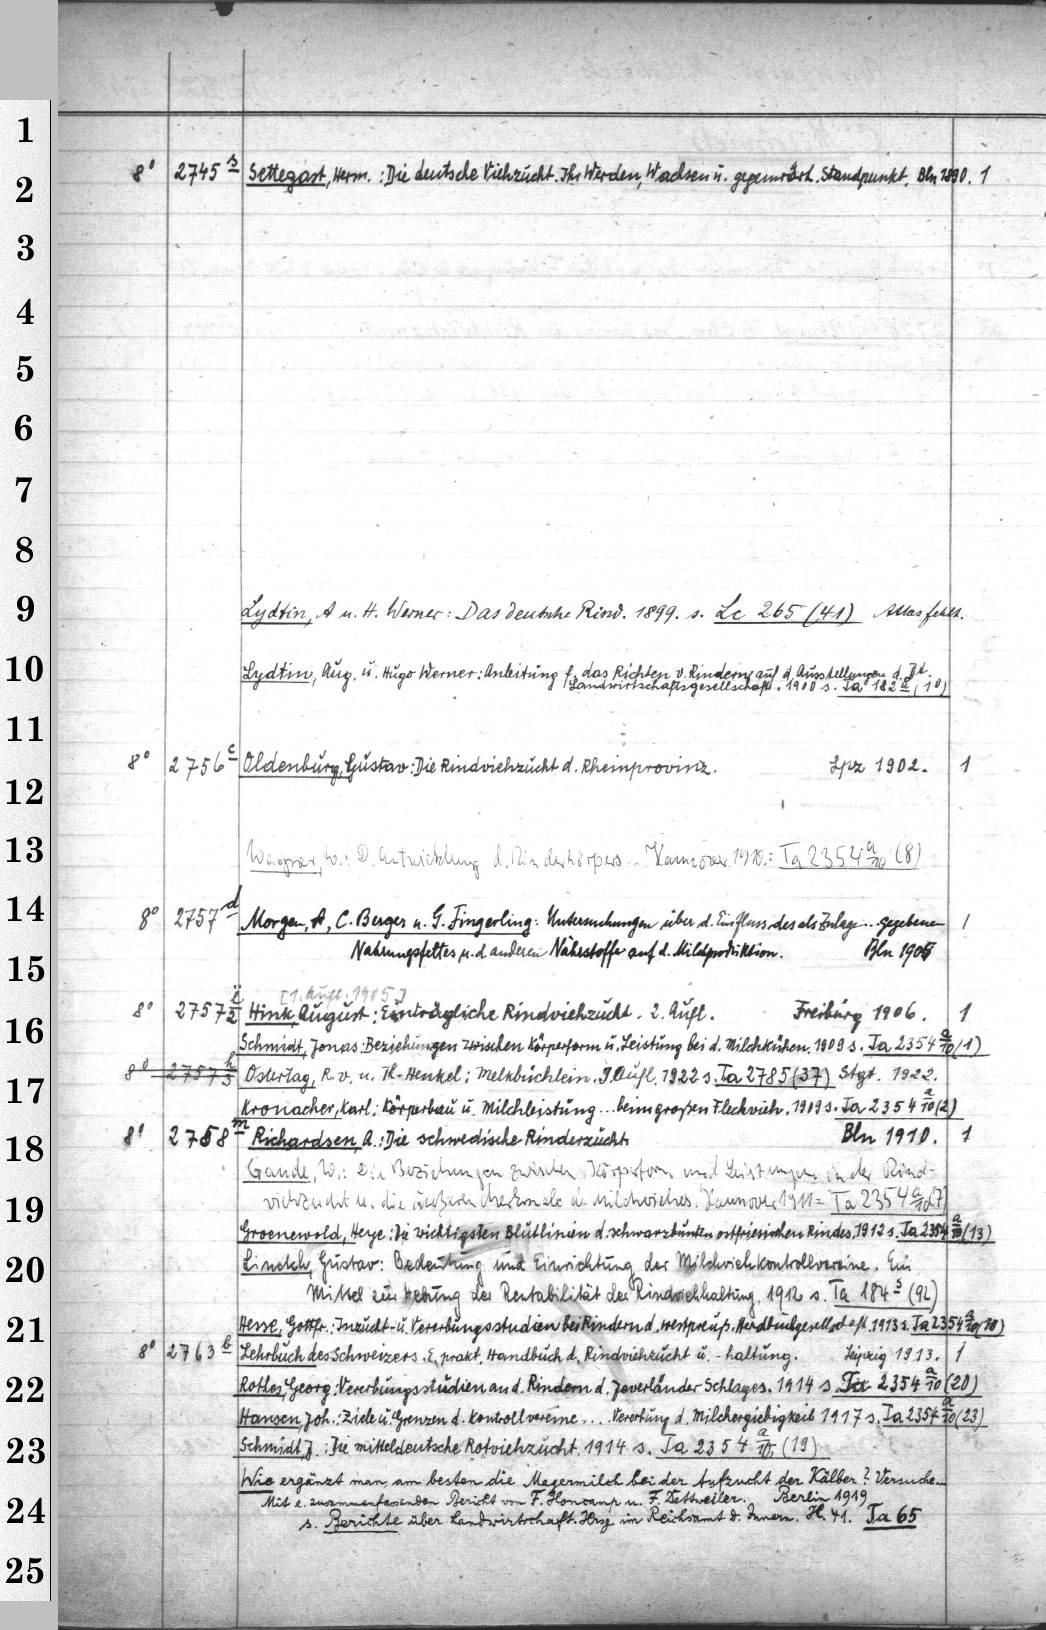 1
2
3
4
5
6
7
8
9
10
11
12
13
14
15
16
17
18
19
20
21
22
23
24
25
8° 2745 s Settegast, Herm.: Die deutsche Viehzucht. Ihr Werden, Wachsen u. gegenwärt. Standpunkt. Bln 1890. 1
Lydtin, A u. H. Werner: Das deutsche Rind. 1899. s. Lc 265 (41) Atlas fehlt.
Lydtin, Aug. u. Hugo Werner: Anleitung f. das Richten v. Rindern auf d. Ausstellungen d. Dt.
Landwirtschaftsgesellschaft. 1900 s. Ta 182 (10)
8° 2756 c Oldenburg, Gustav: Die Rindviehzucht d. Rheinprovinz. Lpz 1902. 1
Wagner, W.: D. Entwicklung d. Rinderkörpers... Hannover 1910.: Ta 2354 a/10 (8)
8° 2757 d Morgen, A, C. Berger u. G. Fingerling: Untersuchungen über d. Einfluss des als Zulage... gegebenen 1
Nahrungsfettes u. d. anderen Nährstoffe auf d. Milchproduktion. Bln 1905
[1. Aufl. 1905]
8° 2757 i/2 Hink, August: Einträgliche Rindviehzucht. 2. Aufl. Freiburg 1906. 1
Schmidt, Jonas: Beziehungen zwischen Körperform u. Leistung bei d. Milchkühen. 1909 s. Ta 2354 a/10 (1)
8° 2757 h/3 Ostertag, R. v. u. Th. Henkel: Melkbüchlein. 9. Aufl. 1922 s. Ta 2785 (37) Stgt. 1922.
Kronacher, Karl: Körperbau u. Milchleistung... beim großen Fleckvieh. 1909 s. Ta 2354 a/10 (2)
8° 2758 m Richardsen, A.: Die schwedische Rinderzucht. Bln 1910. 1
Gaude, W.: Die Beziehungen zwischen Körperform und Leistungen in der Rind-
viehzucht u. die äußern Merkmale d. Milchviehes. Hannover 1911 = Ta 2354 a/10 (7)
Groenewold, Heye: Die wichtigsten Blutlinien d. schwarzbunten ostfriesischen Rindes. 1912 s. Ta 2354 a/10 (13)
Lindch, Gustav: Bedeutung und Einrichtung der Milchviehkontrollvereine. Ein
Mittel zur Hebung der Rentabilität der Rindviehhaltung. 1912 s. Ta 184 s (92)
Hesse, Gottfr.: Inzucht- u. Vererbungsstudien bei Rindern d. westpreuß. Herdbuchgesellschaft 1913 s. Ta 2354 a/10 (18)
8° 2763 b Lehrbuch des Schweizers. E. prakt. Handbuch d. Rindviehzucht u. -haltung. Leipzig 1913. 1
Rothes, Georg: Vererbungsstudien an d. Rindern d. Jeverländer Schlages. 1914 s. Ta 2354 a/10 (20)
Hansen, Joh.: Ziele u. Grenzen d. Kontrollvereine.... Vererbung d. Milchergiebigkeit 1917 s. Ta 2354 a/10 (23)
Schmidt, J.: Die mitteldeutsche Rotviehzucht. 1914 s. Ta 2354 a/10 (19)
Wie ergänzt man am besten die Magermilch bei der Aufzucht der Kälber? Versuche...
Mit e. zusammenfassenden Bericht von F. Honcamp u. F. Dettweiler. Berlin 1919
s. Berichte über Landwirtschaft. Hrsg im Reichsamt d. Innern. H. 41. Ta 65